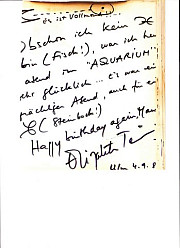 ... es ist Vollmond!...
Obschon ich kein ♓
bin (Fisch!), war ich heut
abend im "AQUARIUM"
sehr glücklich... es war ein
prächtiger Abend, auch für ein
♑ (Steinbock!)
Happy birthday again, Man
Elizabeth
Ulm 4.9.8